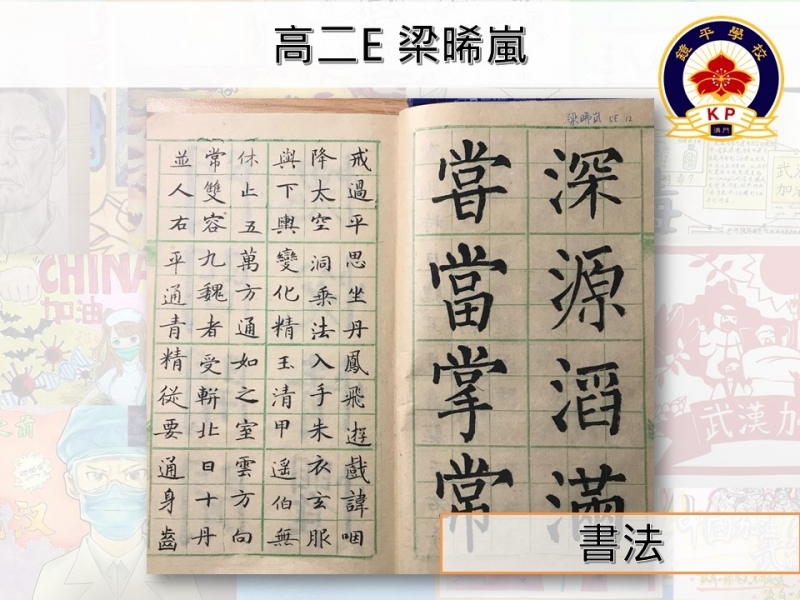 高二E 梁晞嵐
鏡平學校
KP
澳門
梁晞嵐 5E 12
深源滔滿
嘗當掌常
戒過平思坐丹鳳飛遊戲諱咽
降太空洞乘法入手朱衣玄服
與下輿變化精玉清甲遥伯無
休止五萬方通如之室雲方向
常雙容九魏者受輧北日十丹
並人右平通青精從要通身齒
書法
CHINA
加油
武漢加